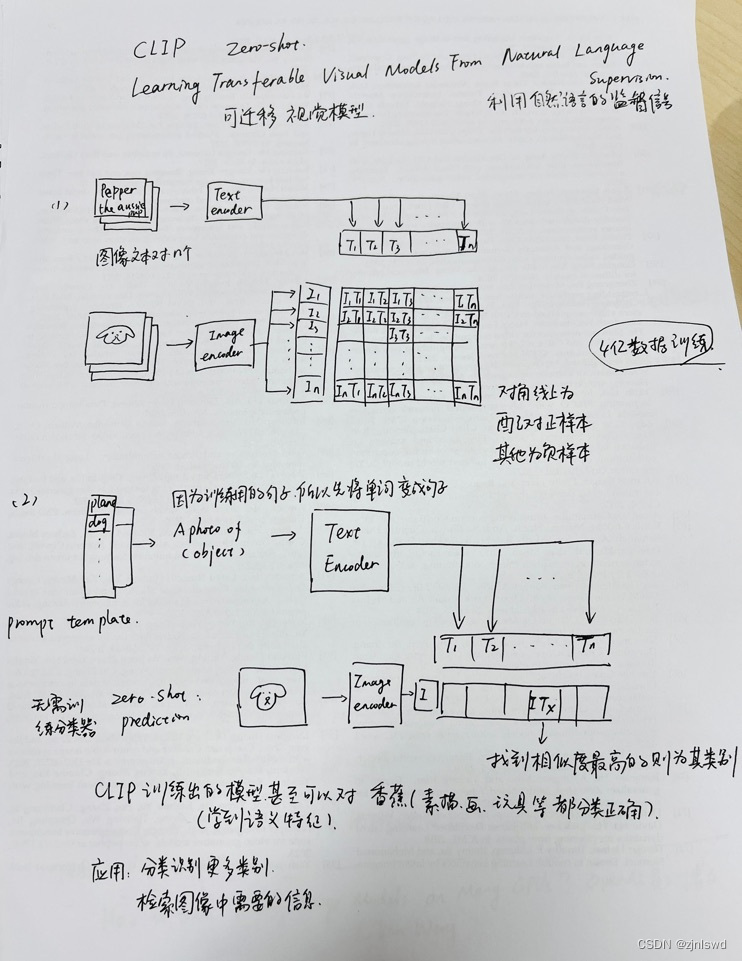 CLIP zero-shot.
Learning Transferable Visual Models From Natural Language
Supervision.
可迁移 视觉模型.
利用自然语言的监督信号
(1)
Pepper
the aussie
pup
Text
encoder
T1 T2 T3 ... Tn
图像文本对n个
Image
encoder
I1
I2
I3
In
I1T1 I1T2 I1T3 ... I1Tn
I2T1 I2T2 I2T3 ... I2Tn
I3T3
InT1 InT2 InT3 ... InTn
4亿数据训练.
对角线上为
配对正样本
其他为负样本
(2)
因为训练用的句子,所以先将单词变成句子
plane
dog
A photo of
(object)
Text
Encoder
prompt template.
T1 T2 .... Tn
无需训
练分类器
zero-shot.
prediction
Image
encoder
I
ITx
找到相似度最高的则为其类别
CLIP训练出的模型,甚至可以对 香蕉(素描、画、玩具等都分类正确).
(学到语义特征).
应用: 分类识别更多类别.
检索图像中需要的信息.
CSDN @zjnlswd